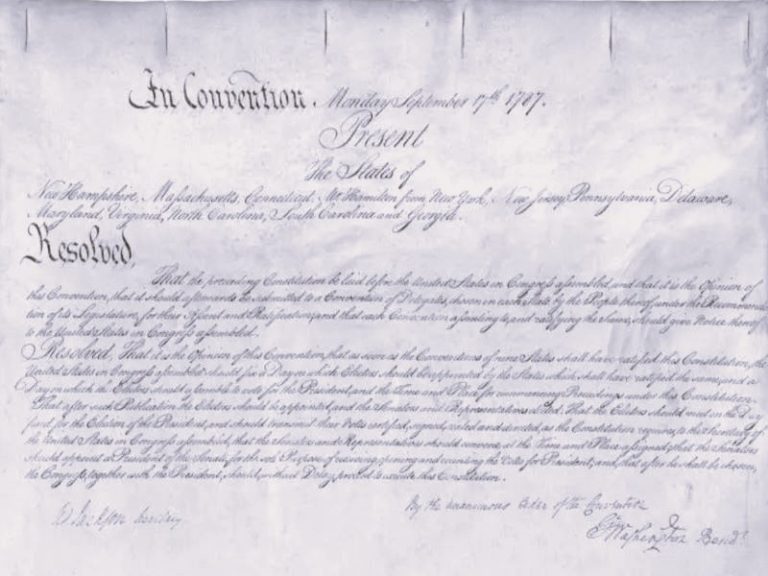 In Convention. Monday September 17th 1787.
Present
The States of
New Hampshire, Massachusetts, Connecticut, Mr. Hamilton from New York, New Jersey, Pennsylvania, Delaware,
Maryland, Virginia, North Carolina, South Carolina and Georgia.
Resolved,
That the preceeding Constitution be laid before the United States in Congress assembled, and that it is the Opinion of
this Convention, that it should afterwards be submitted to a Convention of Delegates, chosen in each State by the People thereof, under the Recommenda-
tion of its Legislature, for their Assent and Ratification; and that each Convention assenting to, and ratifying the Same, should give Notice thereof
to the United States in Congress assembled.
Resolved, That it is the Opinion of this Convention, that as soon as the Conventions of nine States shall have ratified this Constitution, the
United States in Congress assembled should fix a Day on which Electors should be appointed by the States which shall have ratified the same, and a
Day on which the Electors should assemble to vote for the President, and the Time and Place for commencing Proceedings under this Constitution.
That after such Publication the Electors should be appointed, and the Senators and Representatives elected: That the Electors should meet on the Day
fixed for the Election of the President, and should transmit their Votes certified, signed, sealed and directed, as the Constitution requires, to the Secretary of
the United States in Congress assembled, that the Senators and Representatives should convene at the Time and Place assigned; that the Senators
should appoint a President of the Senate, for the sole Purpose of receiving, opening and counting the Votes for President; and, that after he shall be chosen,
the Congress, together with the President, should, without Delay, proceed to execute this Constitution.
By the unanimous Order of the Convention
W. Jackson Secretary
Go: Washington Presidt.